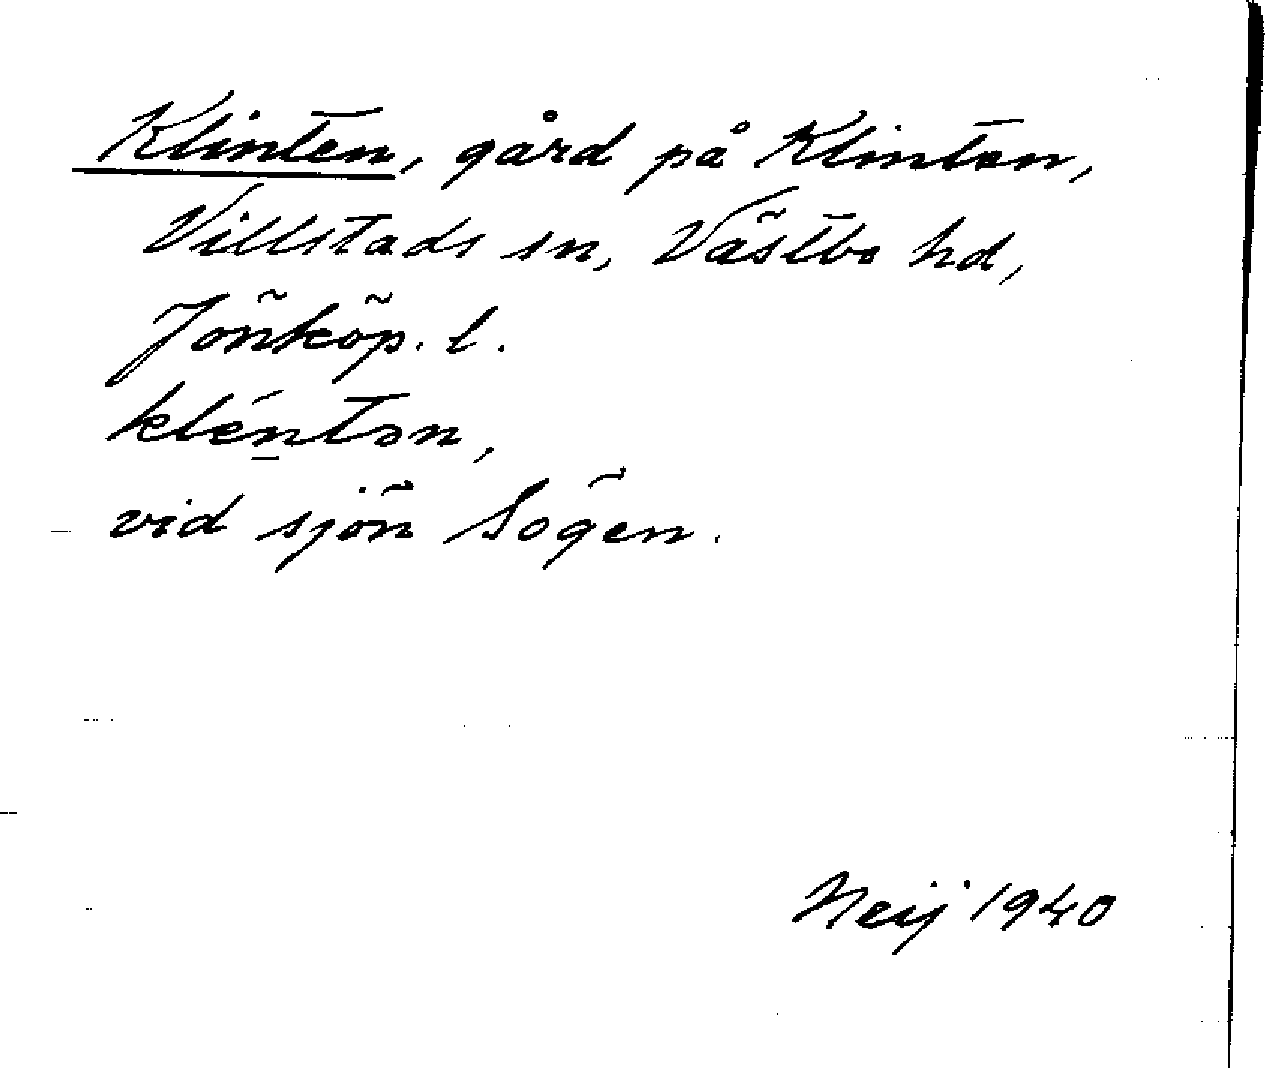 Klinten, gård på Klinten,
Villstads sn, Västbo hd,
Jönköp. l.
kléntən,
vid sjön Sögen.
Neij 1940